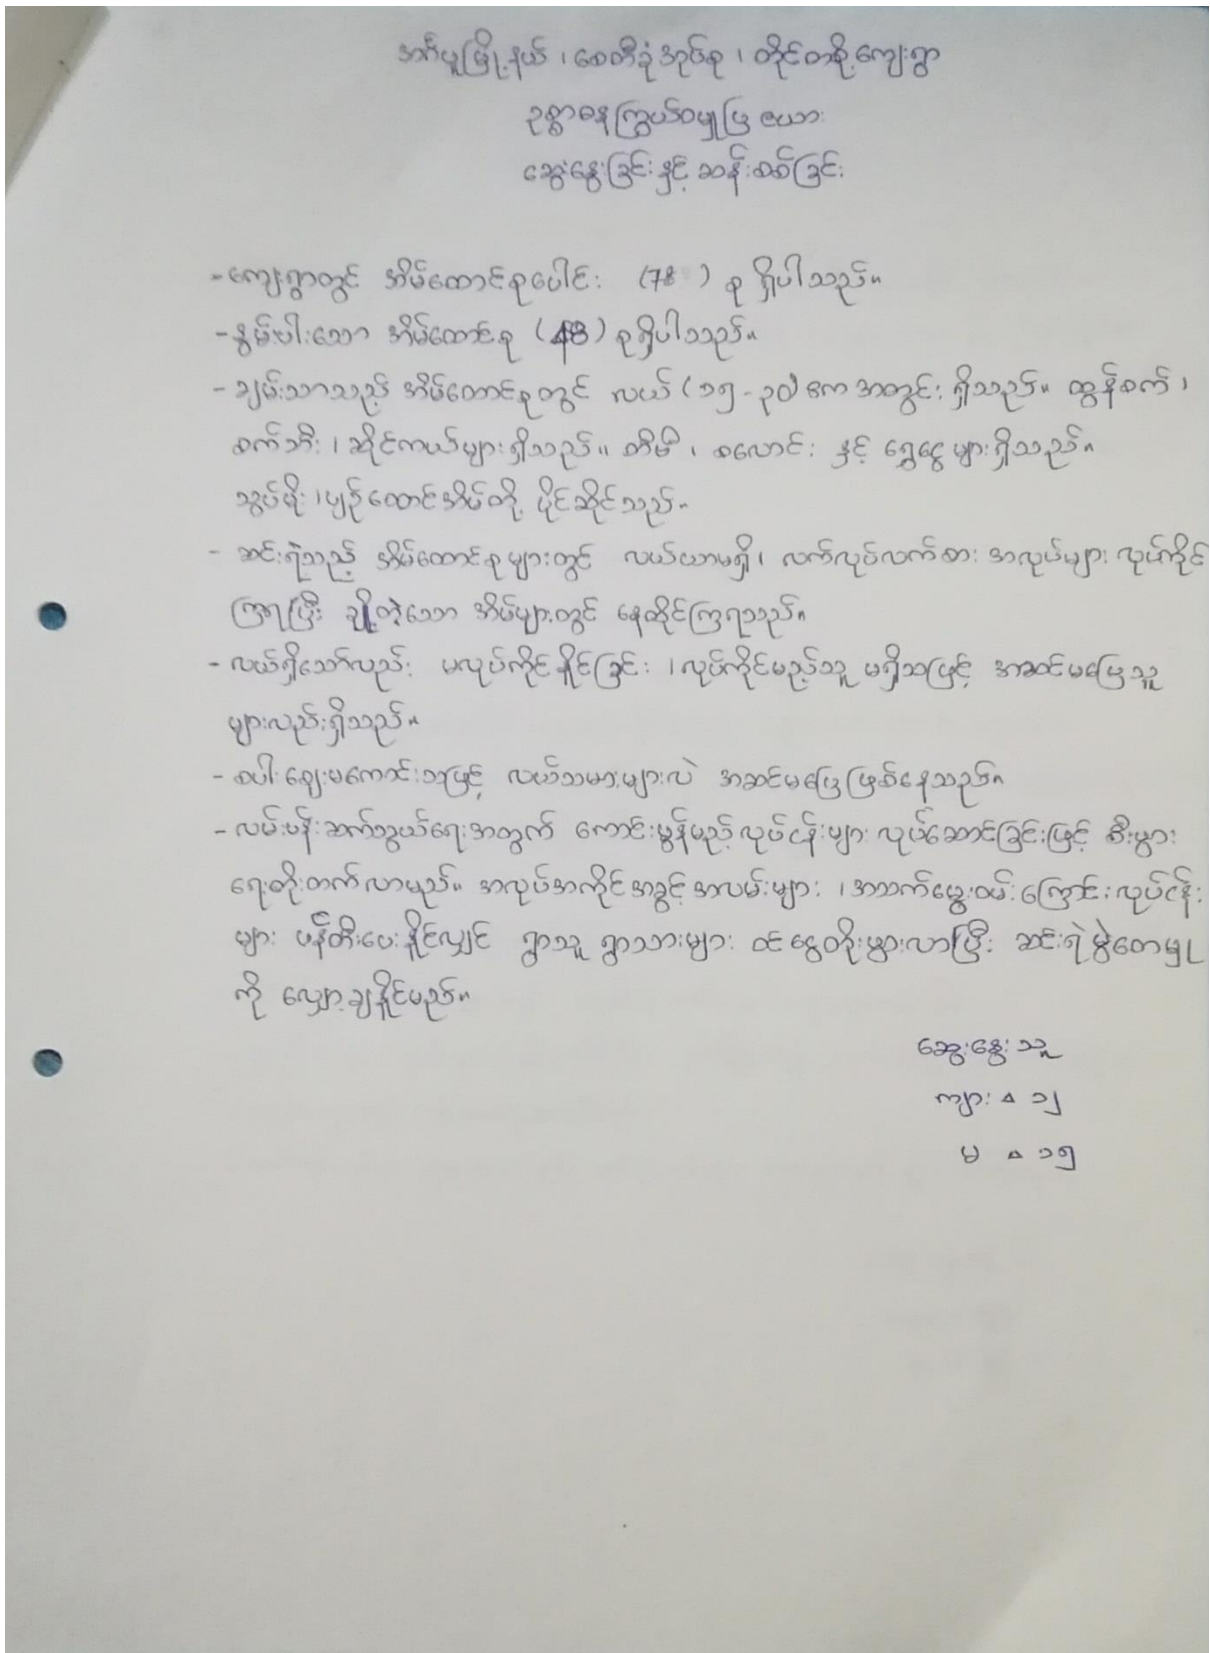 အင်္ဂပူမြို့နယ် ၊ စေတီခုံအုပ်စု ၊ တိုင်တစို့ကျေးရွာ
ဥစ္စာဓနကြွယ်ဝမှုပြ ဇယား
ဆွေးနွေးခြင်းနှင့် ဆန်းစစ်ခြင်း
- ကျေးရွာတွင် အိမ်ထောင်စုပေါင်း (78 ) စု ရှိပါသည်။
- နွမ်းပါးသော အိမ်ထောင်စု (48) စုရှိပါသည်။
- ချမ်းသာသည့် အိမ်ထောင်စုတွင် လယ် (၁၅ - ၃၀) ဧက အတွင်း ရှိသည်။ ထွန်စက် ၊
စက်ဘီး ၊ ဆိုင်ကယ်များရှိသည်။ တီဗီ ၊ စလောင်း နှင့် ရွှေငွေများရှိသည်။
သွပ်မိုး ၊ ပျဉ်ထောင်အိမ်တို့ ပိုင်ဆိုင်သည်။
- ဆင်းရဲသည့် အိမ်ထောင်စုများတွင် လယ်ယာမရှိ ၊ လက်လုပ်လက်စား အလုပ်များ လုပ်ကိုင်
ကြရပြီး ချို့တဲ့သော အိမ်များတွင် နေထိုင်ကြရသည်။
- လယ်ရှိသော်လည်း မလုပ်ကိုင်နိုင်ခြင်း ၊ လုပ်ကိုင်မည့်သူ မရှိသဖြင့် အဆင်မပြေသူ
များလည်းရှိသည်။
- စပါးဈေးမကောင်းသဖြင့် လယ်သမားများလဲ အဆင်မပြေဖြစ်နေသည်။
- လမ်းပန်းဆက်သွယ်ရေးအတွက် ကောင်းမွန်မည့်လုပ်ငန်းများ လုပ်ဆောင်ခြင်းဖြင့် စီးပွား
ရေးတိုးတက်လာမည်။ အလုပ်အကိုင်အခွင့်အလမ်းများ ၊ အသက်မွေးဝမ်းကြောင်းလုပ်ငန်း
များ ဖန်တီးပေးနိုင်လျှင် ရွာသူ ရွာသားများ ဝင်ငွေတိုးပွားလာပြီး ဆင်းရဲမွဲတေမှု
ကို လျှော့ချနိုင်မည်။
ဆွေးနွေးသူ
ကျား - ၁၂
မ - ၁၅